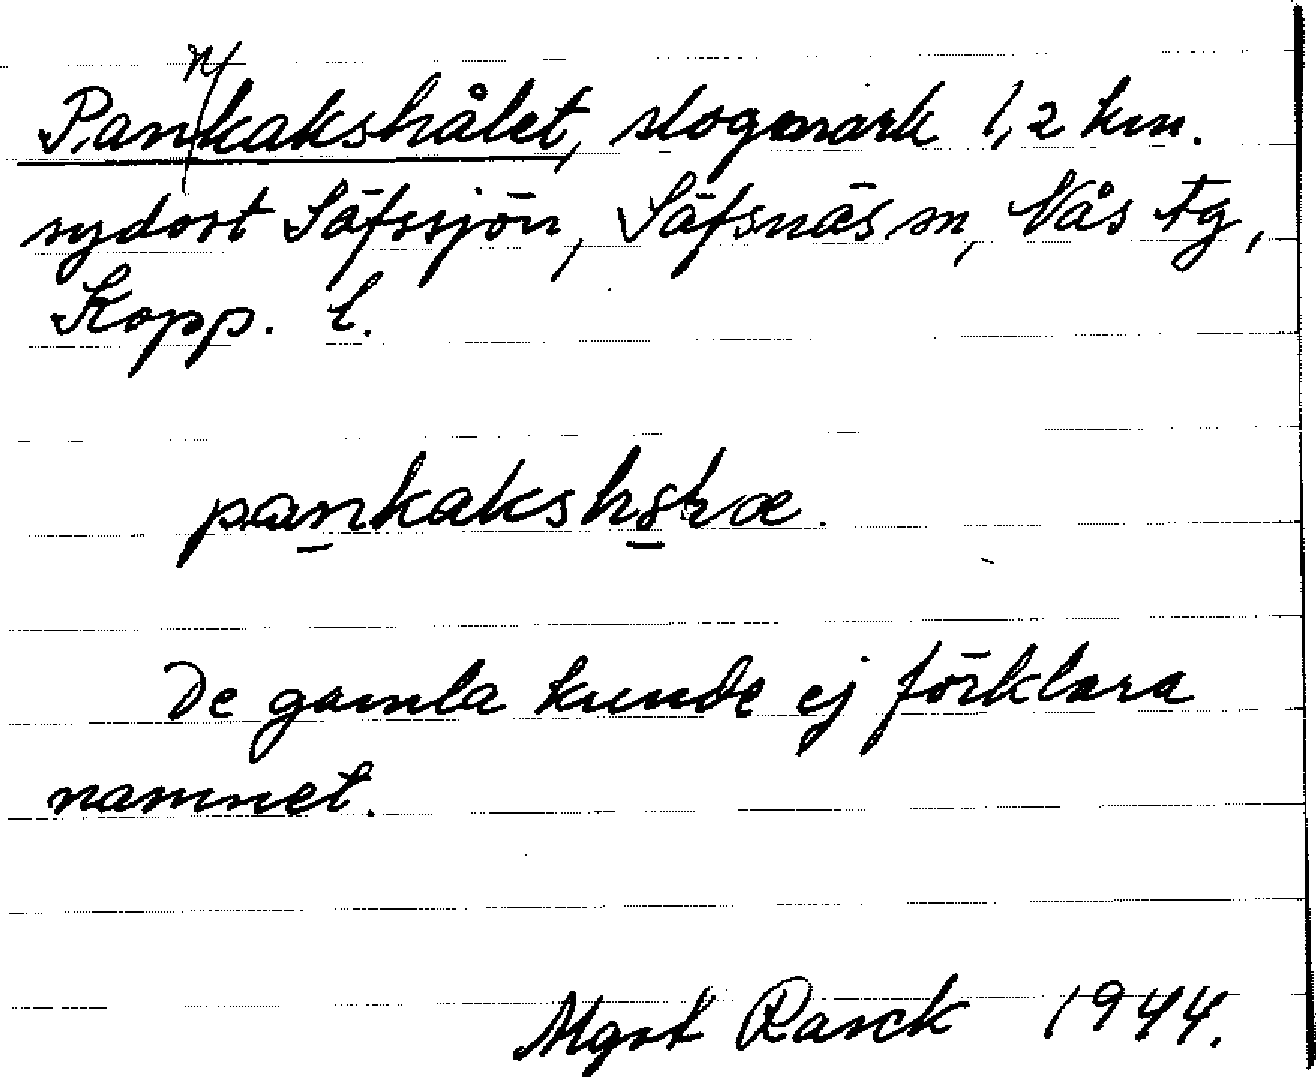 Pannkakshålet, slogmark 1,2 km.
sydost Säfssjön, Säfsnäs sn, Nås Fg,
Kopp. l.
De gamla kunde ej förklara
namnet.
Mgrt Ranck 1944.